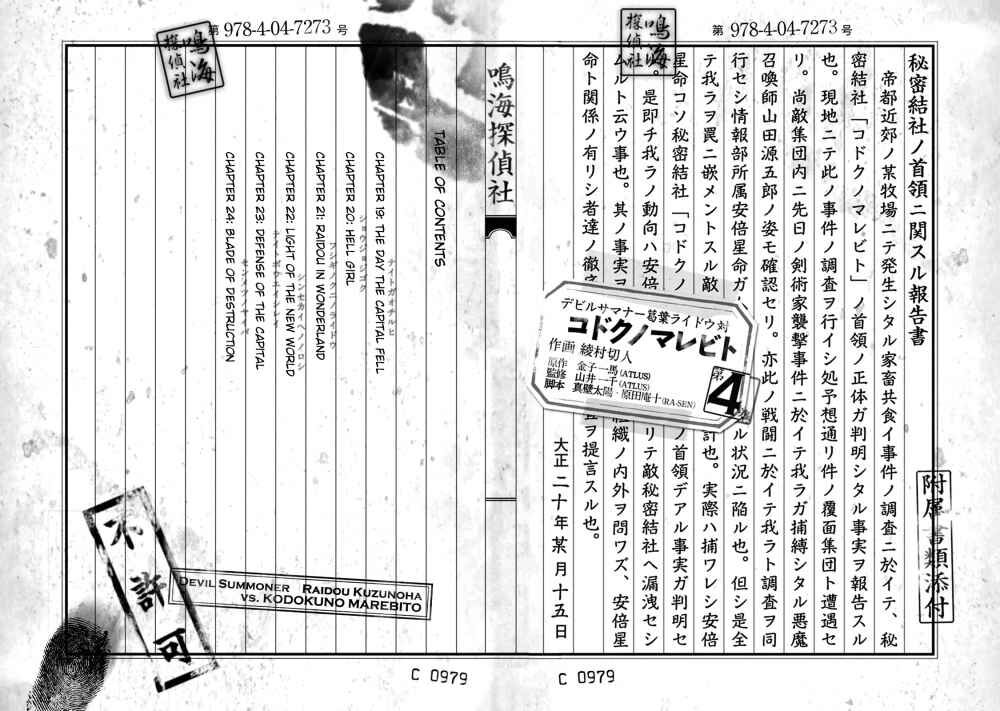 第 978-4-04-7273 号
鳴海探偵社
秘密結社ノ首領ニ関スル報告書
帝都近郊ノ某牧場ニテ発生シタル家畜共食イ事件ノ調査ニ於イテ、秘
密結社「コドクノマレビト」ノ首領ノ正体ガ判明シタル事実ヲ報告スル
也。現地ニテ此ノ事件ノ調査ヲ行イシ処予想通リ件ノ覆面集団ト遭遇セ
リ。尚敵集団内ニ先日ノ剣術家襲撃事件ニ於イテ我ラガ捕縛シタル悪魔
召喚師山田源五郎ノ姿モ確認セリ。亦此ノ戦闘ニ於イテ我ラト調査ヲ同
行セシ情報部所属安倍星命ガ
ル状況ニ陥ル也。但シ是全
テ我ラヲ罠ニ嵌メントスル敵
計也。実際ハ捕ワレシ安倍
星命コソ秘密結社「コドクノ
ノ首領デアル事実ガ判明セ
。是即チ我ラノ動向ハ安倍
リテ敵秘密結社ヘ漏洩セシ
ムルト云ウ事也。其ノ事実ヲ
織ノ内外ヲ問ワズ、安倍星
命ト関係ノ有リシ者達ノ徹
ヲ提言スル也。
大正二十年某月十五日
附属書類添付
デビルサマナー葛葉ライドウ対
コドクノマレビト
作画 綾村切人
原作 金子一馬(ATLUS)
監修 山井一千(ATLUS)
脚本 真壁太陽・原田庵十(RA-SEN)
第4
C 0979
第 978-4-04-7273 号
鳴海探偵社
鳴海探偵社
TABLE OF CONTENTS
CHAPTER 19: THE DAY THE CAPITAL FELL
テイトガオチルヒ
CHAPTER 20: HELL GIRL
ショウジョジゴク
CHAPTER 21: RAIDOU IN WONDERLAND
フシギノクニノライドウ
CHAPTER 22: LIGHT OF THE NEW WORLD
シンセカイヘノノロシ
CHAPTER 23: DEFENSE OF THE CAPITAL
CHAPTER 24: BLADE OF DESTRUCTION
不許可
DEVIL SUMMONER RAIDOU KUZUNOHA
VS. KODOKUNO MAREBITO
C 0979